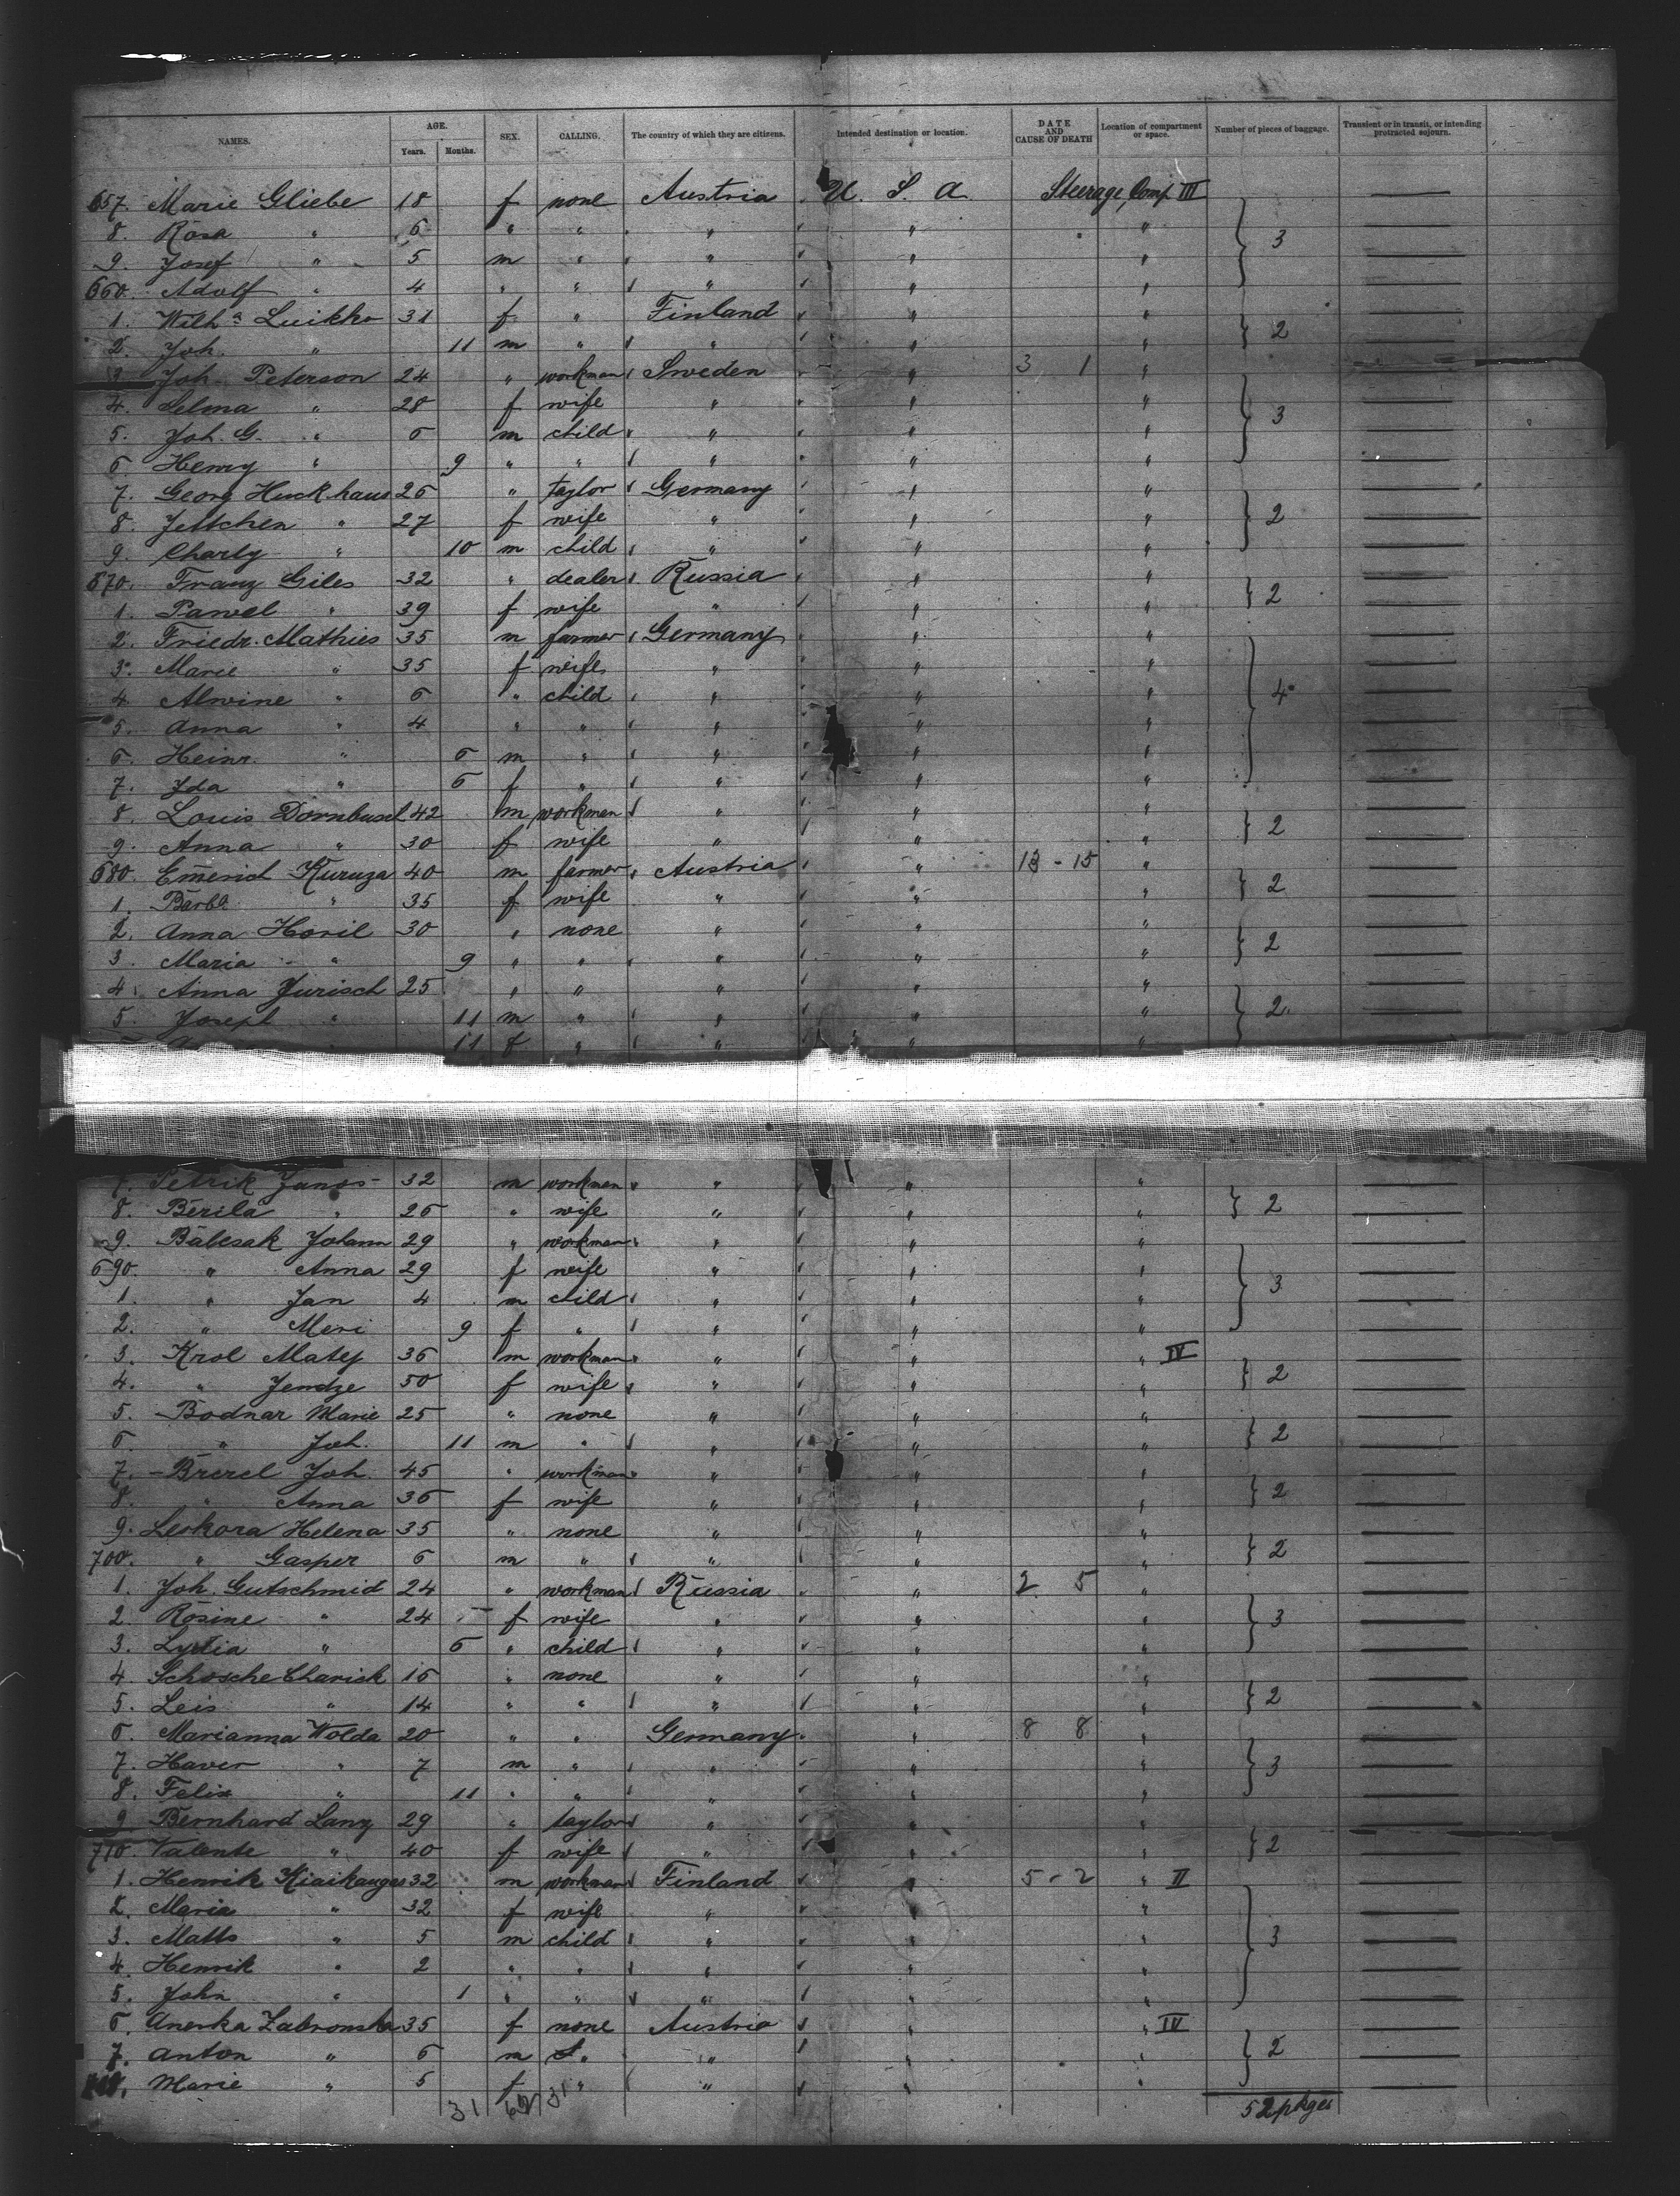 NAMES. AGE. Years. Months. SEX. CALLING. The country of which they are citizens. Intended destination or location. DATE AND CAUSE OF DEATH Location of compartment or space. Number of pieces of baggage. Transient or in transit, or intending protracted sojourn.
657. Marie Gliebe 18 f none Austria U. S. A. Steerage, Comp. III
8. Rosa " 6 " " " " " 3
9. Josef " 5 m " " " "
660. Adolf " 4 " " " " "
1. Wilh.a Luikko 31 f " Finland " "
2. Joh. " 11 m " " " " 2
3. Joh. Peterson 24 " workman Sweden " 3 1 "
4. Selma " 28 f wife " " " 3
5. Joh. G. " 6 m child " " "
6 Henry " 9 " " " " "
7. Georg Huckhaus 26 " taylor Germany " "
8. Jettchen " 27 f wife " " " 2
9. Charly " 10 m child " " "
670. Franz Giles 32 " dealer Russia " "
1. Pawel " 39 f wife " " " 2
2. Friedr. Mathies 35 m farmer Germany " "
3. Marie " 35 f wife " " "
4 Alwine " 6 " child " " " 4
5. Anna " 4 " " " " "
6. Heinr. " 6 m " " " "
7. Ida " 6 f " " " "
8. Louis Dornbusch 42 m workman " " "
9. Anna " 30 f wife " " " 2
680. Emerich Kuruza 40 m farmer Austria " 13 - 15 "
1. Barba. " 35 f wife " " " 2
2. Anna Horil 30 " none " " "
3. Maria " 9 " " " " " 2
4. Anna Jurisch 25 " " " " "
5. Joseph " 11 m " " " " 2
11 f " " " "
7. Petrik Janos 32 m workman " " "
8. Berila " 26 " wife " " " 2
9. Babcsak Johann 29 " workman " " "
690. " Anna 29 f wife " " " 3
1. " Jan 4 m child " " "
2. " Meri 9 f " " " "
3. Krol Matej 36 m workman " " " IV
4. " Jendze 50 f wife " " " 2
5. Bodnar Marie 25 " none " " "
6. " Joh. 11 m " " " " 2
7. Joh. 45 " workman " " "
8. " Anna 36 f wife " " " 2
9. Leskora Helena 35 " none " " "
700. " Gasper 6 m " " " " 2
1. Joh. Gutschmid 24 " workman Russia " 2 5 "
2. Rosine " 24 f wife " " " 3
3. Lydia " 6 " child " " "
4. Schosche Charick 16 " none " " "
5. Leis " 14 " " " " " 2
6. Marianna Wolda 20 " " Germany " 8 8 "
7. Haver " 7 m " " " " 3
8. Felix " 11 " " " " "
9 Bernhard Lang 29 " taylor " " "
710. Valente " 40 f wife " " " 2
1. Henrik Kiaikangas 32 m workman Finland " 5 - 2 " II
2. Maria " 32 f wife " " "
3. Matts " 5 m child " " " 3
4. Henrik " 2 " " " " "
5. John " 1 " " " " "
6. Anerka Zabronska 35 f none Austria " " IV
7. Anton " 6 m " " " " 2
Marie " 5 f " " " "
31 31 52 pkges